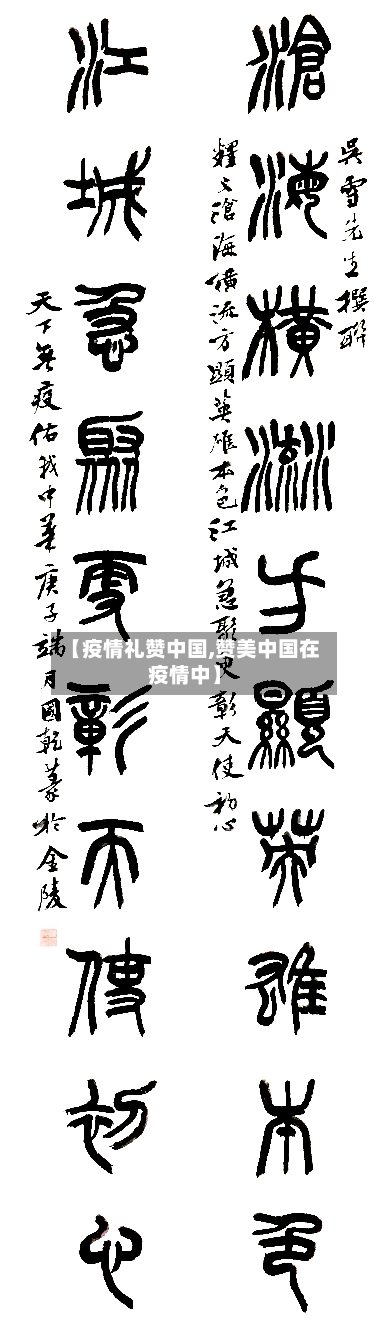 吳雪先生撰聯
滄海橫流方顯英雄本色
釋文滄海橫流方顯英雄本色江城急聚更彰天使初心
江城急聚更彰天使初心
天下無疫佑我中華庚子端月國乾篆於金陵
【疫情礼赞中国,赞美中国在
疫情中】